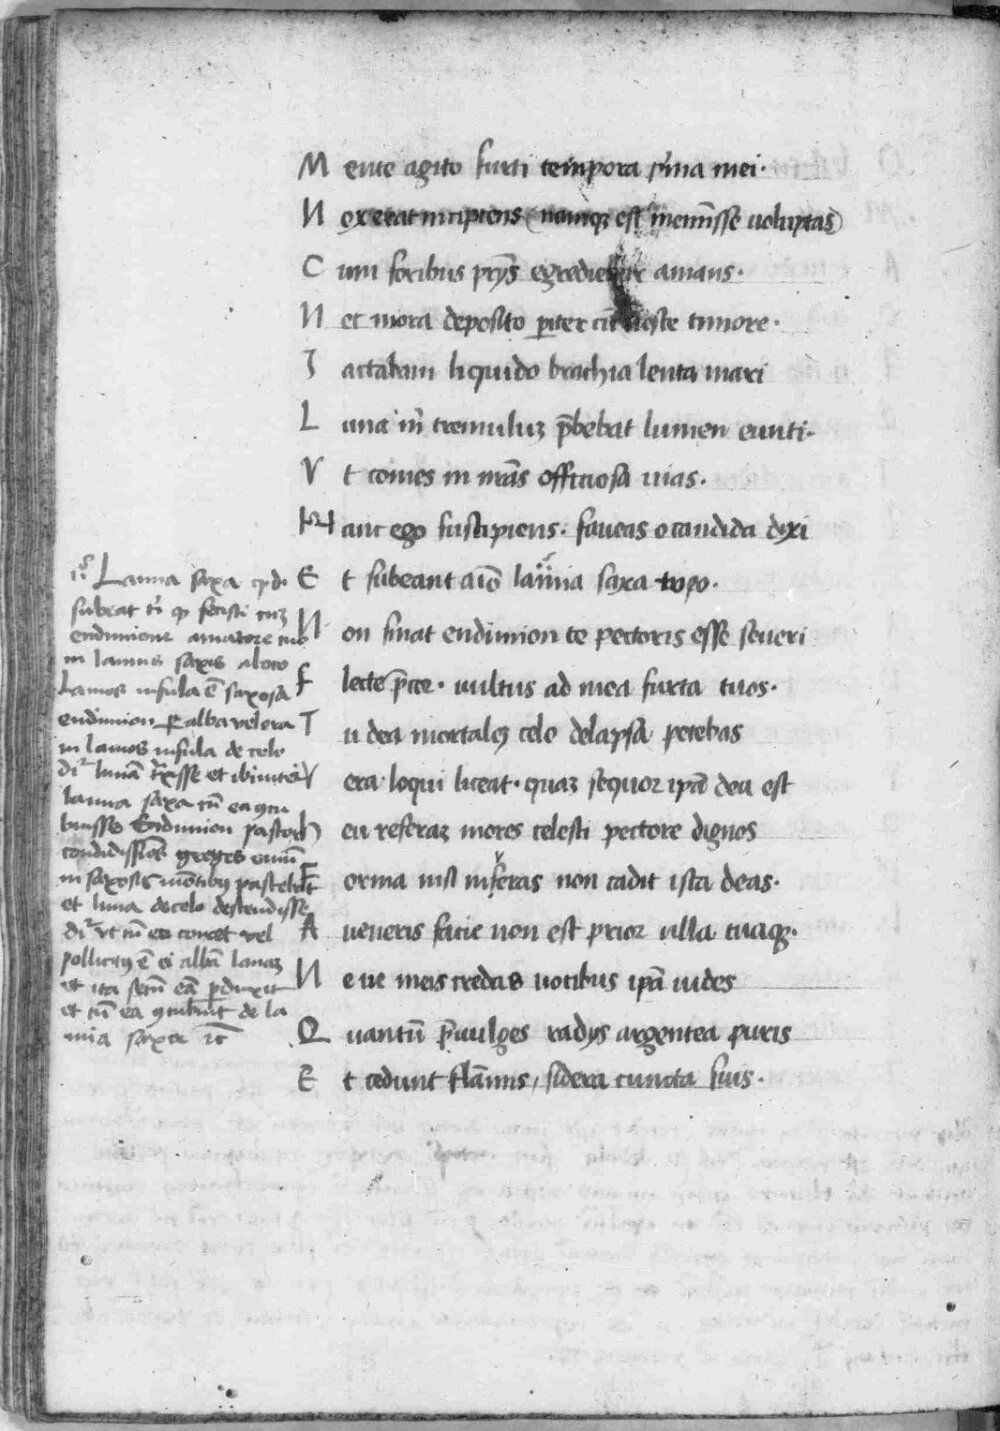 M ente agito furti tempora p͛ma mei·
N ox erat incipiens (namqꝫ est memīsse uoluptas)
C um foribus pr̄ijs egredieb amans·
N ec mora deposito p̱iter cū ueste timore·
I actabam liquido brachia lenta mari
L una m͛ tremuluꝫ p̄bebat lumen eunti·
V t comes in nr̄as officiosa uias·
H anc ego suscipiens· faueas o candida dixi
E t subeant aīo latmia saxa topo·
N on sinat endimion te pectoris esse seueri
f lecte p̄cor· uultus ad mea furta tuos·
T u dea mortaleꝫ celo delapsa petebas
V era loqui liceat· quaꝫ sequor ip̄a dea est
N eu referaꝫ mores celesti pectore dignos
F orma nisi in ueras non cadit ista deas·
A ueneris facie non est prior ulla tuaqꝫ·
N eue meis credas uocibus ip̄a uides
Q uantū p̄uulges radijs argentea puris
E t cedunt flāmis, sidera cuncta suis·
Lanna saxa qd·
subeat t͛ qꝫ fecisti cuꝫ
endimione amatore tuo
in lamus saxis a loco
Lamos insula ē saxosa
endimion p̱ alba velera
in lamos insula de celo
di͛ lunā t͛xisse et ibi
lanna saxa cū ea ꝯcu
buisse Endimion pastor
condidissīōs greges
in saxosis mōtibꝫ pascebat
et luna de celo descendisse
di͛ vt cū eo coiret vel
pollicitꝫ ē ei albā lanaꝫ
et ita secū eā p̱duxit
et cū ea ꝯcubuit de la
mia saxa ⁊c̄